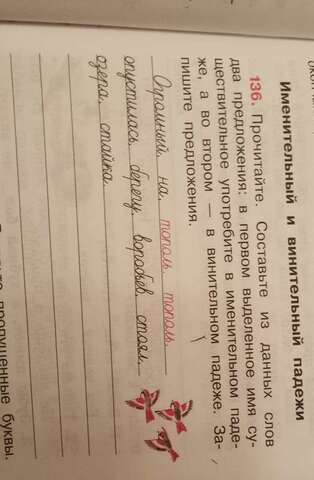 Именительный и винительный падежи
136. Прочитайте. Составьте из данных слов
два предложения: в первом выделенное имя су-
ществительное употребите в именительном паде-
же, а во втором — в винительном падеже. За-
пишите предложения.
Огромный, на, тополь, тополь,
опустилась, берегу, воробьёв, стоял,
озера, стайка.
пропущенные буквы.